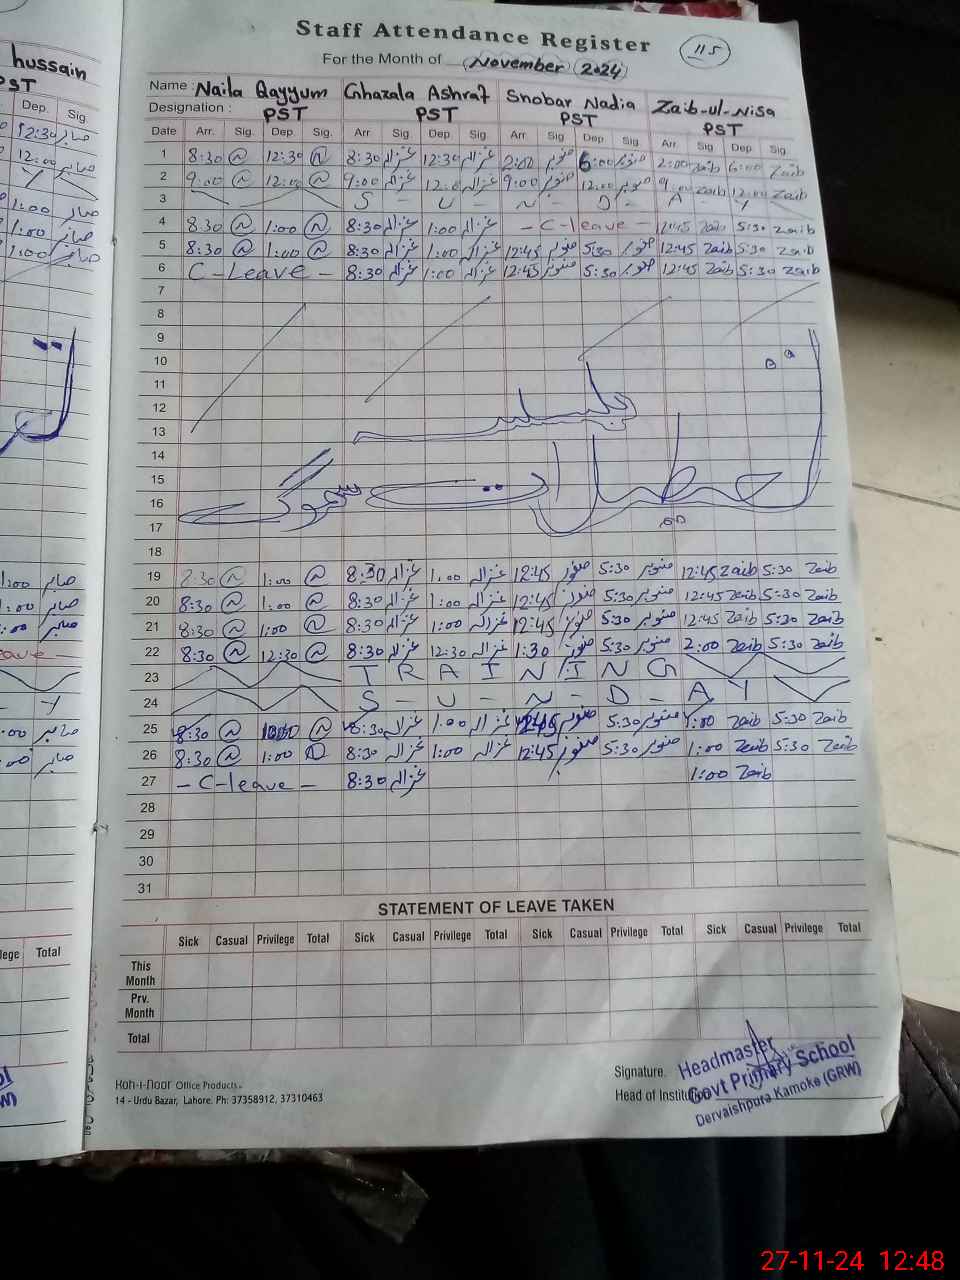 Staff Attendance Register
115
For the Month of November 2024
hussain
PST
Dep. Sig.
12:30 صابر
12:00 صابر
1:00 صابر
1:00 صابر
1:00 صابر
Name : Naila Qayyum Ghazala Ashraf Snobar Nadia Zaib-ul-Nisa
Designation : PST PST PST PST
Date Arr. Sig. Dep. Sig. Arr Sig. Dep Sig. Arr Sig Dep Sig. Arr Sig Dep Sig.
1 8:30 12:30 8:30 غزالہ 12:30 غزالہ 2:00 صنوبر 6:00 صنوبر 2:00 zaib 6:00 zaib
2 9:00 12:00 9:00 غزالہ 12:00 غزالہ 9:00 صنوبر 12:00 صنوبر 9:00 zaib 12:00 zaib
3 S - U - N - D - A - Y
4 8:30 1:00 8:30 غزالہ 1:00 غزالہ - C-leave - 12:45 zaib 5:30 zaib
5 8:30 1:00 8:30 غزالہ 1:00 غزالہ 12:45 صنوبر 5:30 صنوبر 12:45 zaib 5:30 zaib
6 C-Leave - 8:30 غزالہ 1:00 غزالہ 12:45 صنوبر 5:30 صنوبر 12:45 zaib 5:30 zaib
7
8
9
10
11
12
13
14
15
16
17
18
تعطیلات سموگ
19 8:30 1:00 8:30 غزالہ 1:00 غزالہ 12:45 صنوبر 5:30 صنوبر 12:45 zaib 5:30 zaib
20 8:30 1:00 8:30 غزالہ 1:00 غزالہ 12:45 صنوبر 5:30 صنوبر 12:45 zaib 5:30 zaib
21 8:30 1:00 8:30 غزالہ 1:00 غزالہ 12:45 صنوبر 5:30 صنوبر 12:45 zaib 5:30 zaib
22 8:30 12:30 8:30 غزالہ 12:30 غزالہ 1:30 صنوبر 5:30 صنوبر 2:00 zaib 5:30 zaib
23 T R A I N I N G
24 S - U - N - D - A Y
25 8:30 8:30 غزالہ 1:00 غزالہ 12:45 صنوبر 5:30 صنوبر 1:00 zaib 5:30 zaib
26 8:30 1:00 8:30 غزالہ 1:00 غزالہ 12:45 صنوبر 5:30 صنوبر 1:00 zaib 5:30 zaib
27 - C-leave - 8:30 غزالہ 1:00 zaib
28
29
30
31
1:00 صابر
1:00 صابر
:00 صابر
eave -
- Y
:00 صابر
:00 صابر
STATEMENT OF LEAVE TAKEN
lege Total
Sick Casual Privilege Total Sick Casual Privilege Total Sick Casual Privilege Total Sick Casual Privilege Total
This Month
Prv. Month
Total
Koh-i-Noor Office Products
14 - Urdu Bazar, Lahore. Ph: 37358912, 37310463
Signature.
Head of Institution
Headmaster
Govt Primary School
Dervaishpura Kamoke (GRW)
27-11-24 12:48